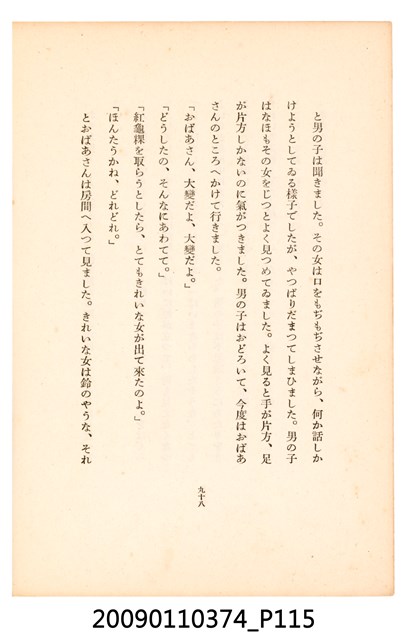 と男の子は聞きました。その女は口をもぢもぢさせながら、何か話しか
けようとしてゐる樣子でしたが、やつぱりだまつてしまひました。男の子
はなほもその女をじつとよく見つめてゐました。よく見ると手が片方、足
が片方しかないのに氣がつきました。男の子はおどろいて、今度はおばあ
さんのところへかけて行きました。
「おばあさん、大變だよ、大變だよ。」
「どうしたの、そんなにあわてて。」
「紅龜粿を取らうとしたら、とてもきれいな女が出て來たのよ。」
「ほんたうかね、どれどれ。」
とおばあさんは房間へ入つて見ました。きれいな女は鈴のやうな、それ
九十八
20090110374_P115